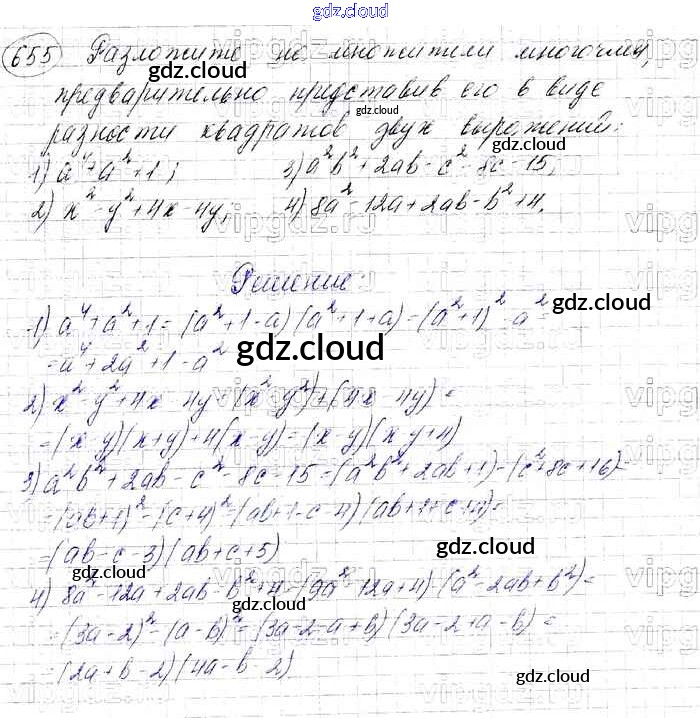 gdz.cloud
655 Разложите на множители многочлен,
предварительно представив его в виде
разности квадратов двух выражений:
1) a⁴+a²+1; 3) a²b²+2ab-c²-8c-15;
2) x²-y²+4x-4y; 4) 8a²-12a+2ab-b²+4.
Решение
1) a⁴+a²+1=(a²+1-a)(a²+1+a)=(a²+1)²-a²=
=a⁴+2a²+1-a²
2) x²-y²+4x-4y=(x²-y²)+(4x-4y)=
=(x-y)(x+y)+4(x-y)=(x-y)(x+y+4)
3) a²b²+2ab-c²-8c-15=(a²b²+2ab+1)-(c²+8c+16)=
=(ab+1)²-(c+4)²=(ab+1-c-4)(ab+1+c+4)=
=(ab-c-3)(ab+c+5)
4) 8a²-12a+2ab-b²+4=(9a²-12a+4)-(a²-2ab+b²)=
=(3a-2)²-(a-b)²=(3a-2-a+b)(3a-2+a-b)=
=(2a+b-2)(4a-b-2)
gdz.cloud